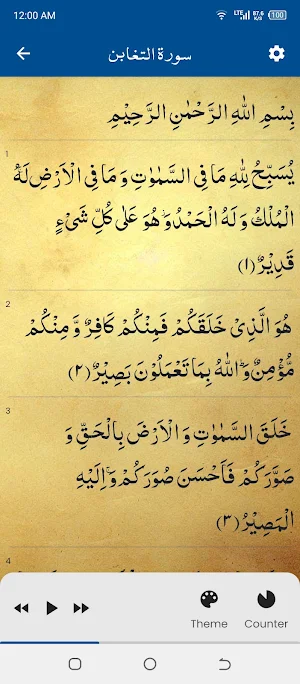 12:00 AM
LTE 87.6 K/S 100
سورة التغابن
بِسْمِ اللّٰهِ الرَّحْمٰنِ الرَّحِيْمِ
1
يُسَبِّحُ لِلّٰهِ مَا فِى السَّمٰوٰتِ وَ مَا فِى الْاَرْضِ لَهُ
الْمُلْكُ وَ لَهُ الْحَمْدُ وَ هُوَ عَلٰى كُلِّ شَىْءٍ
قَدِيْرٌ (١)
2
هُوَ الَّذِىْ خَلَقَكُمْ فَمِنْكُمْ كَافِرٌ وَّ مِنْكُمْ
مُّؤْمِنٌ وَ اللّٰهُ بِمَا تَعْمَلُوْنَ بَصِيْرٌ (٢)
3
خَلَقَ السَّمٰوٰتِ وَ الْاَرْضَ بِالْحَقِّ وَ
صَوَّرَكُمْ فَاَحْسَنَ صُوَرَكُمْ وَ اِلَيْهِ
الْمَصِيْرُ (٣)
4
Theme
Counter